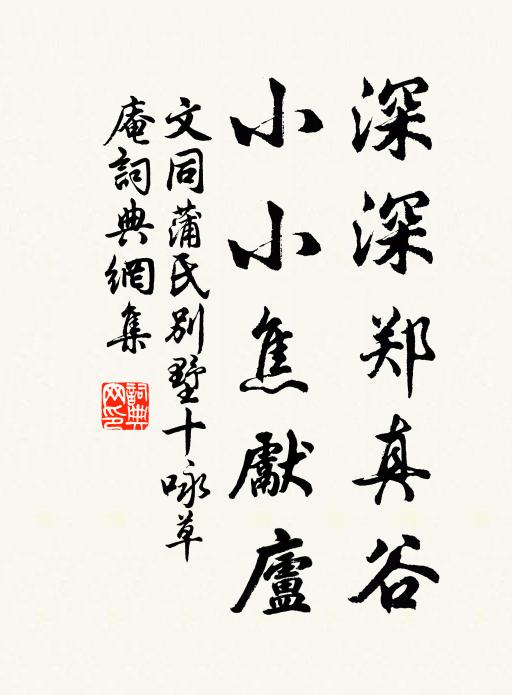 深深郑真谷
小小焦獻廬
文同蒲氏别墅十咏草
庵詞典網集
詞典网印